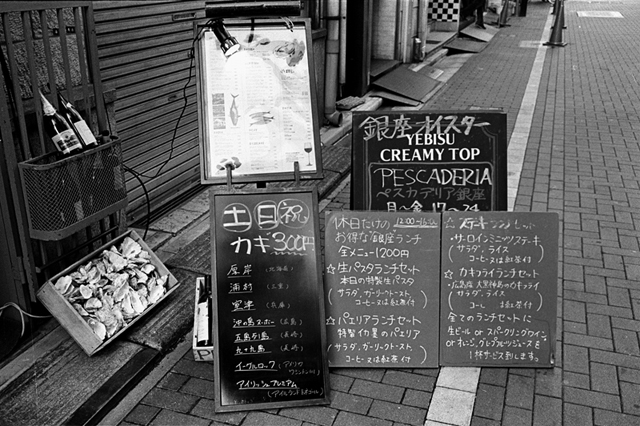 銀座オイスター
YEBISU
CREAMY TOP
PESCADERIA
ペスカデリア銀座
月〜金 17〜24
土 日 祝
カキ 300円
厚岸 (北海道)
浦村 (三重)
室津 (兵庫)
沖の島スポー (広島)
五島列島 (長崎)
九十九島 (長崎)
イーグルロック (アメリカ
ワシントン州)
アイリッシュプレミアム
(アイルランド
休日だけの 12:00〜16:00
お得な銀座ランチ
全メニュー1200円
☆生パスタランチセット
本日の特製生パスタ
(サラダ、ガーリックトースト、
コーヒー又は紅茶付)
☆パエリアランチセット
特製イカ墨のパエリア
(サラダ、ガーリックトースト
コーヒー又は紅茶付)
☆ ステーキランチセット
・サーロインミニッツステーキ
(サラダ、ライス
コーヒー又は紅茶付)
☆カキフライランチセット
・広島産 大黒神島のカキフライ
(サラダ、ライス
コーヒー 又は 紅茶付)
全てのランチセットに
生ビール or スパークリングワイン
or オレンジ、グレープフルーツジュースを
1杯サービス致します。